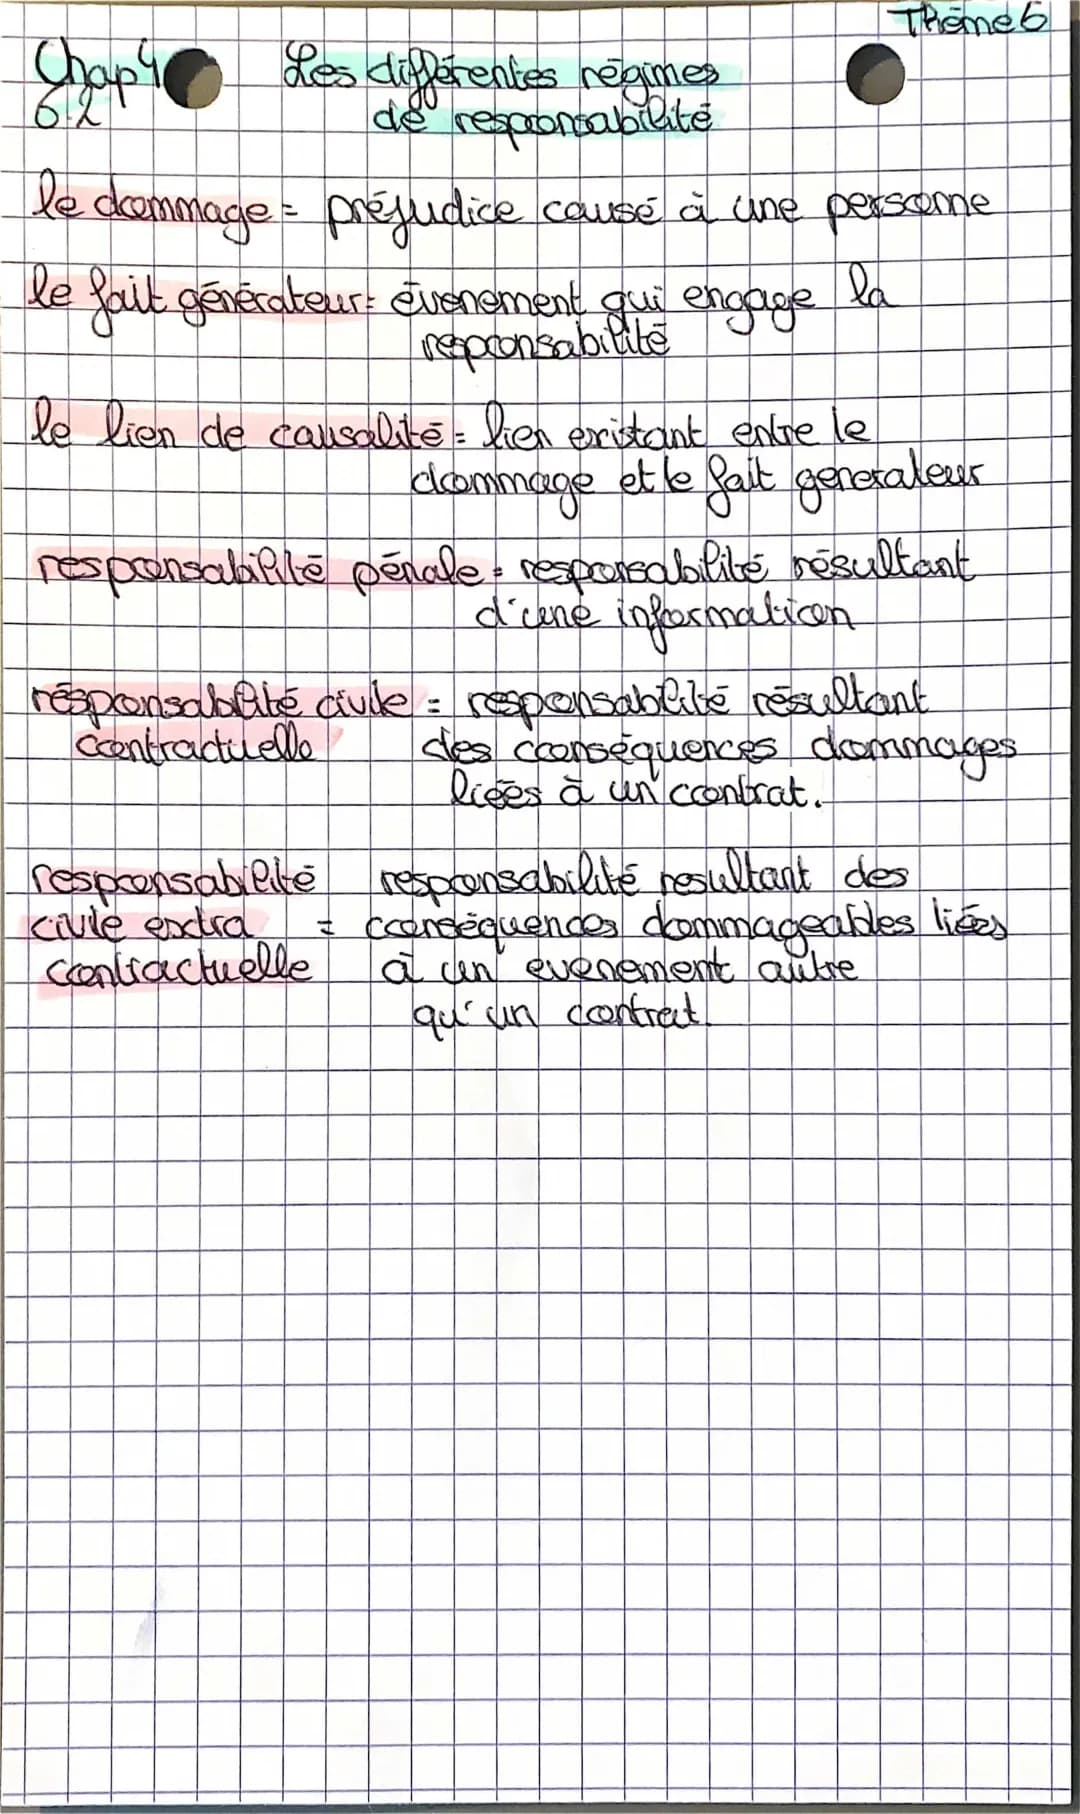 Thème 6
Chap 4 Les différentes régimes
6.2 de responsabilité
le dommage = préjudice causé à une personne
le fait générateur = évenement qui engage la
responsabilité
le lien de causalité = lien existant entre le
dommage et le fait generateur
responsabilité pénale = responsabilité résultant
d'une information
responsabilité civile = responsabilité résultant
contractuelle des conséquences dommages
liées à un contrat.
responsabilité responsabilité resultant des
civile extra = conséquences dommageables liées
contractuelle à un evenement autre
qu'un contrat.